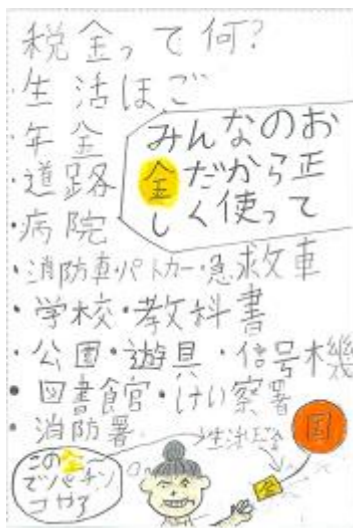 税金って何?
・生活ほご
・年金
・道路
・病院
みんなのお
金だから正
しく使って
・消防車・パトカー・急救車
・学校・教科書
・公園・遊具・信号機
・図書館・けい察署
・消防署
この金
でパチンコやろ
生活ほご
国
金